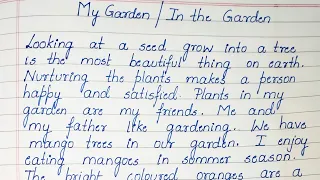 My Garden / In the Garden
Looking at a seed grow into a tree
is the most beautiful thing on earth.
Nurturing the plants makes a person
happy and satisfied. Plants in my
garden are my friends. Me and
my father like gardening. We have
mango trees in our garden. I enjoy
eating mangoes in summer season.
The bright coloured oranges are a